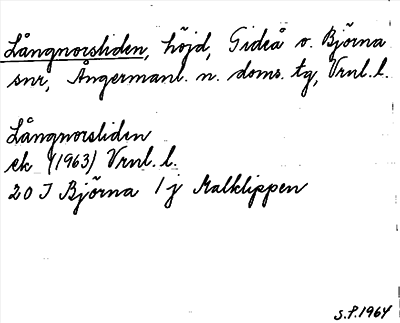 Långnorsliden, höjd, Gideå o. Björna
snr, Ångermanl. n. doms. tg, Vrnl. l.
Långnorsliden
ek (1963) Vrnl. l.
20 I Björna 1 j Malklippen
S.F. 1964